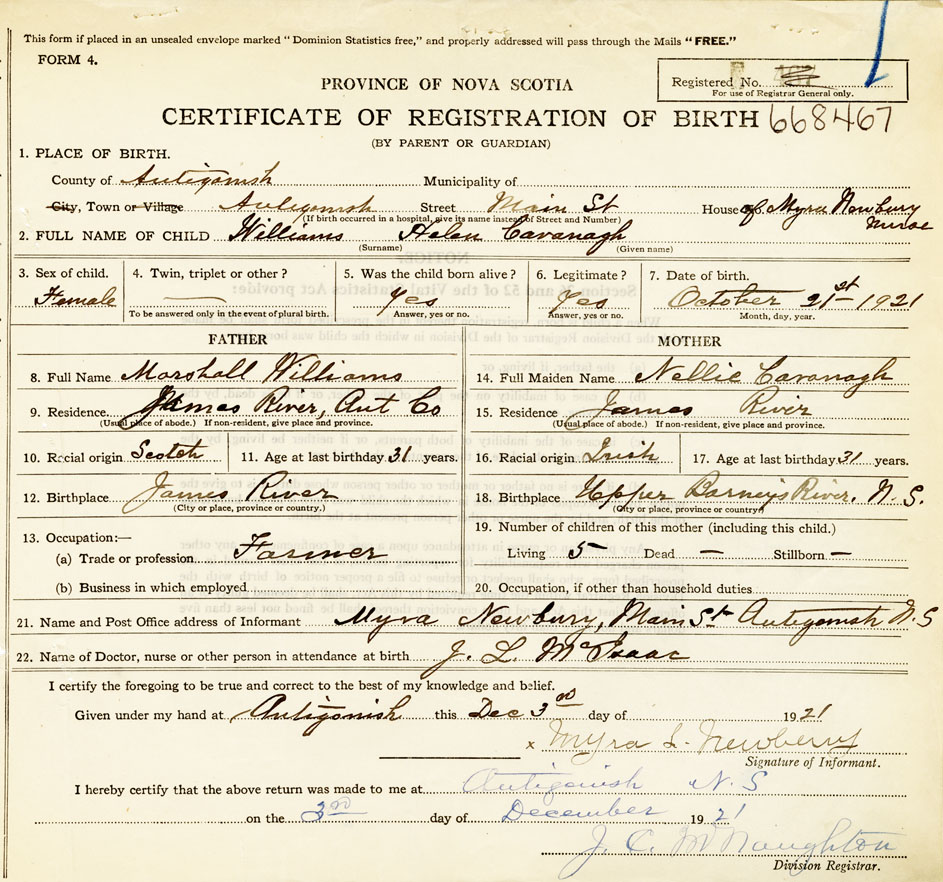 This form if placed in an unsealed envelope marked "Dominion Statistics free," and properly addressed will pass through the Mails "FREE."
FORM 4.
Registered No.
For use of Registrar General only.
PROVINCE OF NOVA SCOTIA
CERTIFICATE OF REGISTRATION OF BIRTH 668467
(BY PARENT OR GUARDIAN)
1. PLACE OF BIRTH.
County of Antigonish Municipality of
City, Town or Village Antigonish Street Main St House of Myra Newbury
(If birth occurred in a hospital, give its name instead of Street and Number) Nurse
2. FULL NAME OF CHILD Williams Helen Cavanagh
(Surname) (Given name)
3. Sex of child. 4. Twin, triplet or other? 5. Was the child born alive? 6. Legitimate? 7. Date of birth.
Female — Yes Yes October 21st 1921
To be answered only in the event of plural birth. Answer, yes or no. Answer, yes or no. Month, day, year.
FATHER MOTHER
8. Full Name Marshall Williams 14. Full Maiden Name Nellie Cavanagh
9. Residence James River, Ant Co 15. Residence James River
(Usual place of abode.) If non-resident, give place and province. (Usual place of abode.) If non-resident, give place and province.
10. Racial origin Scotch 11. Age at last birthday 31 years. 16. Racial origin Irish 17. Age at last birthday 31 years.
12. Birthplace James River 18. Birthplace Upper Barneys River. N.S.
(City or place, province or country.) (City or place, province or country)
13. Occupation:— 19. Number of children of this mother (including this child.)
(a) Trade or profession Farmer Living 5 Dead — Stillborn —
(b) Business in which employed 20. Occupation, if other than household duties
21. Name and Post Office address of Informant Myra Newbury, Main St Antigonish N.S
22. Name of Doctor, nurse or other person in attendance at birth J. L. McIsaac
I certify the foregoing to be true and correct to the best of my knowledge and belief.
Given under my hand at Antigonish this Dec 3rd day of 1921
x Myra L. Newberry
Signature of Informant.
I hereby certify that the above return was made to me at Antigonish N.S
on the 3rd day of December 1921
J. C. McNaughton
Division Registrar.